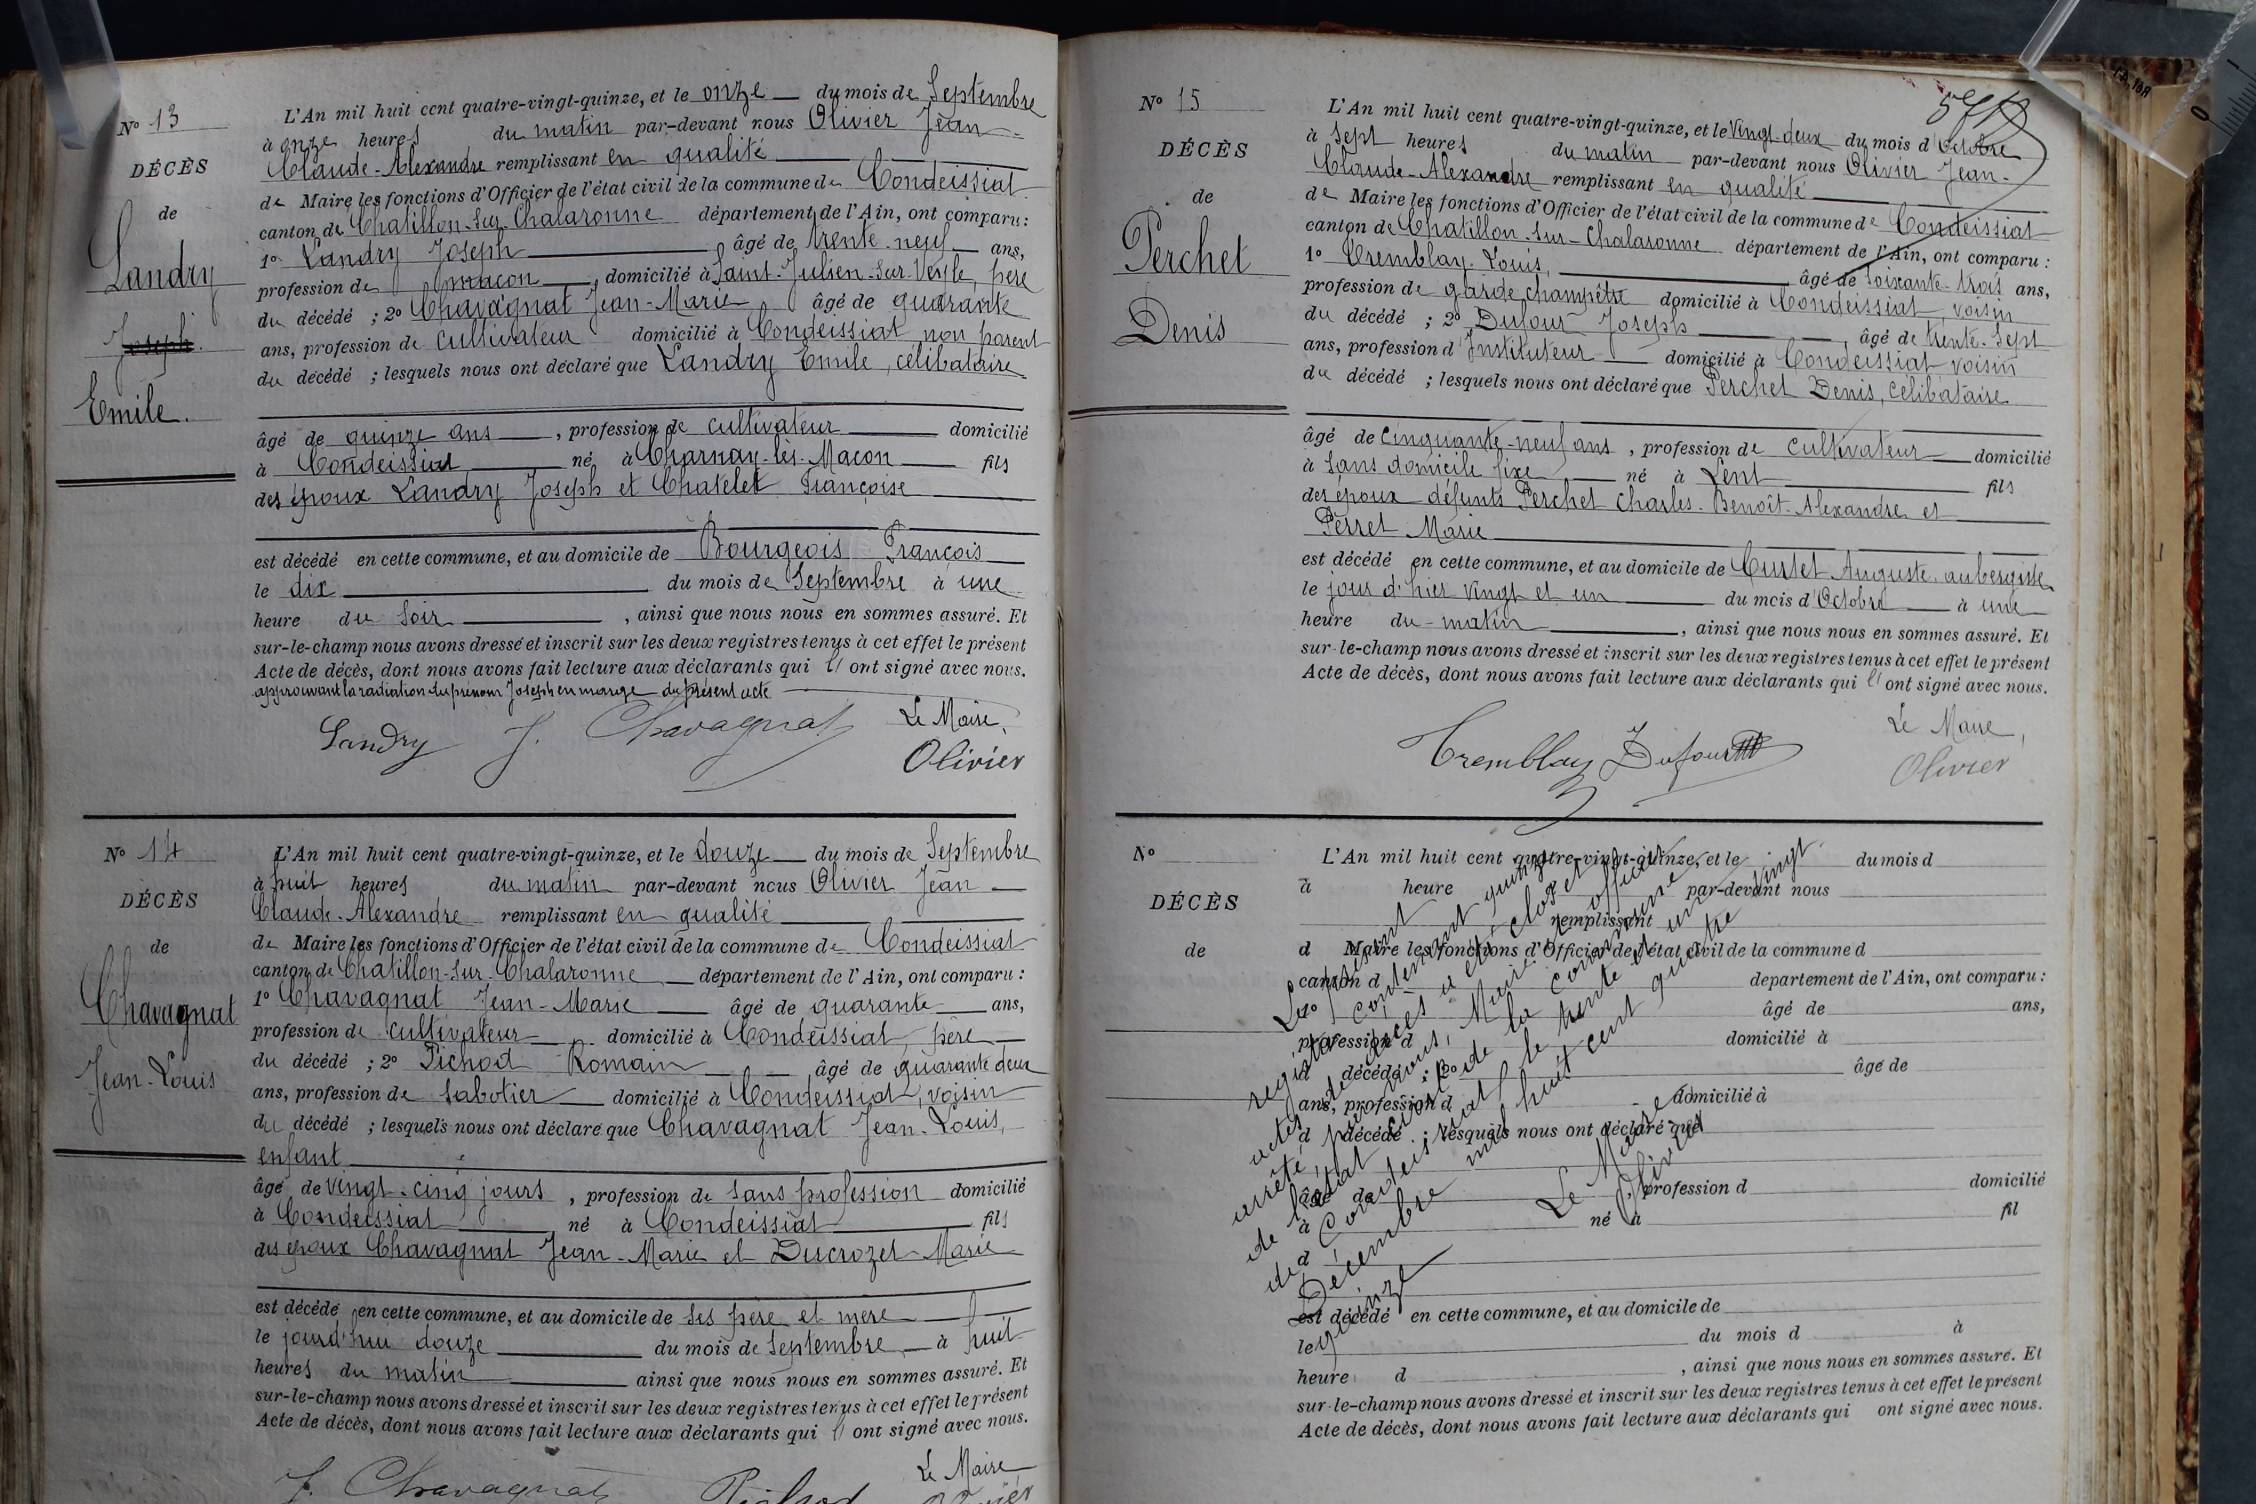 N° 13
DÉCÈS
de
Landry
Joseph.
Emile.
L'An mil huit cent quatre-vingt-quinze, et le onze du mois de Septembre
à onze heures du matin par-devant nous Olivier Jean-
Claude-Alexandre remplissant en qualité
de Maire les fonctions d'Officier de l'état civil de la commune de Condeissiat
canton de Chatillon-sur-Chalaronne département de l'Ain, ont comparu :
1° Landry Joseph âgé de trente-neuf ans,
profession de maçon, domicilié à Saint-Julien-sur-Veyle, père
du décédé ; 2° Chavagnat Jean-Marie âgé de quarante
ans, profession de cultivateur domicilié à Condeissiat non parent
du décédé ; lesquels nous ont déclaré que Landry Emile, célibataire
âgé de quinze ans, profession de cultivateur domicilié
à Condeissiat né à Charnay-lès-Macon fils
des époux Landry Joseph et Chatelet Françoise
est décédé en cette commune, et au domicile de Bourgeois François
le dix du mois de Septembre à une
heure du soir, ainsi que nous nous en sommes assuré. Et
sur-le-champ nous avons dressé et inscrit sur les deux registres tenus à cet effet le présent
Acte de décès, dont nous avons fait lecture aux déclarants qui ont signé avec nous.
approuvant la radiation du prénom Joseph en marge du présent acte
Landry J. Chavagnat Le Maire,
Olivier
N° 14
DÉCÈS
de
Chavagnat
Jean-Louis
L'An mil huit cent quatre-vingt-quinze, et le douze du mois de Septembre
à huit heures du matin par-devant nous Olivier Jean
Claude-Alexandre remplissant en qualité
de Maire les fonctions d'Officier de l'état civil de la commune de Condeissiat
canton de Chatillon-sur-Chalaronne département de l'Ain, ont comparu :
1° Chavagnat Jean-Marie âgé de quarante ans,
profession de cultivateur domicilié à Condeissiat, père
du décédé ; 2° Pichod Romain âgé de quarante deux
ans, profession de sabotier domicilié à Condeissiat, voisin
du décédé ; lesquels nous ont déclaré que Chavagnat Jean-Louis,
enfant
âgé de vingt-cinq jours, profession de sans profession domicilié
à Condeissiat né à Condeissiat fils
des époux Chavagnat Jean-Marie et Ducrozet Marie
est décédé en cette commune, et au domicile de ses père et mère
le jourd'hui douze du mois de Septembre à huit
heures du matin ainsi que nous nous en sommes assuré. Et
sur-le-champ nous avons dressé et inscrit sur les deux registres tenus à cet effet le présent
Acte de décès, dont nous avons fait lecture aux déclarants qui ont signé avec nous.
J. Chavagnat Pichod Le Maire
Olivier
N° 15
DÉCÈS
de
Perchet
Denis
L'An mil huit cent quatre-vingt-quinze, et le vingt-deux du mois d'Octobre
à sept heures du matin par-devant nous Olivier Jean-
Claude-Alexandre remplissant en qualité
de Maire les fonctions d'Officier de l'état civil de la commune de Condeissiat
canton de Chatillon-sur-Chalaronne département de l'Ain, ont comparu :
1° Tremblay Louis, âgé de soixante-trois ans,
profession de garde champêtre domicilié à Condeissiat, voisin
du décédé ; 2° Dufour Joseph, âgé de trente-sept
ans, profession d'Instituteur domicilié à Condeissiat voisin
du décédé ; lesquels nous ont déclaré que Perchet Denis, célibataire
âgé de cinquante-neuf ans, profession de cultivateur domicilié
à sans domicile fixe né à Lent fils
des époux défunts Perchet Charles-Benoît-Alexandre et
Perret Marie
est décédé en cette commune, et au domicile de Curtet Auguste, aubergiste
le jour d'hier vingt et un du mois d'Octobre à une
heure du matin, ainsi que nous nous en sommes assuré. Et
sur-le-champ nous avons dressé et inscrit sur les deux registres tenus à cet effet le présent
Acte de décès, dont nous avons fait lecture aux déclarants qui ont signé avec nous.
Tremblay Dufour Le Maire,
Olivier
N°
DÉCÈS
de
L'An mil huit cent quatre-vingt-quinze, et le du mois d
à heure par-devant nous
remplissant
d Maire les fonctions d'Officier de l'état civil de la commune d
canton d département de l'Ain, ont comparu :
1° âgé de ans,
profession d domicilié à
d décédé ; 2° âgé de
ans, profession d domicilié à
d décédé ; lesquels nous ont déclaré que
âgé de profession d domicilié
à né à fil
d
est décédé en cette commune, et au domicile de
le du mois d à
heure d, ainsi que nous nous en sommes assuré. Et
sur-le-champ nous avons dressé et inscrit sur les deux registres tenus à cet effet le présent
Acte de décès, dont nous avons fait lecture aux déclarants qui ont signé avec nous.
Le présent
registre contenant quinze
actes de décès a été clos et
arrêté par nous, Maire officier
de l'état civil de la commune
de Condeissiat le trente et un
Décembre mil huit cent quatre vingt
quinze
Le Maire
Olivier